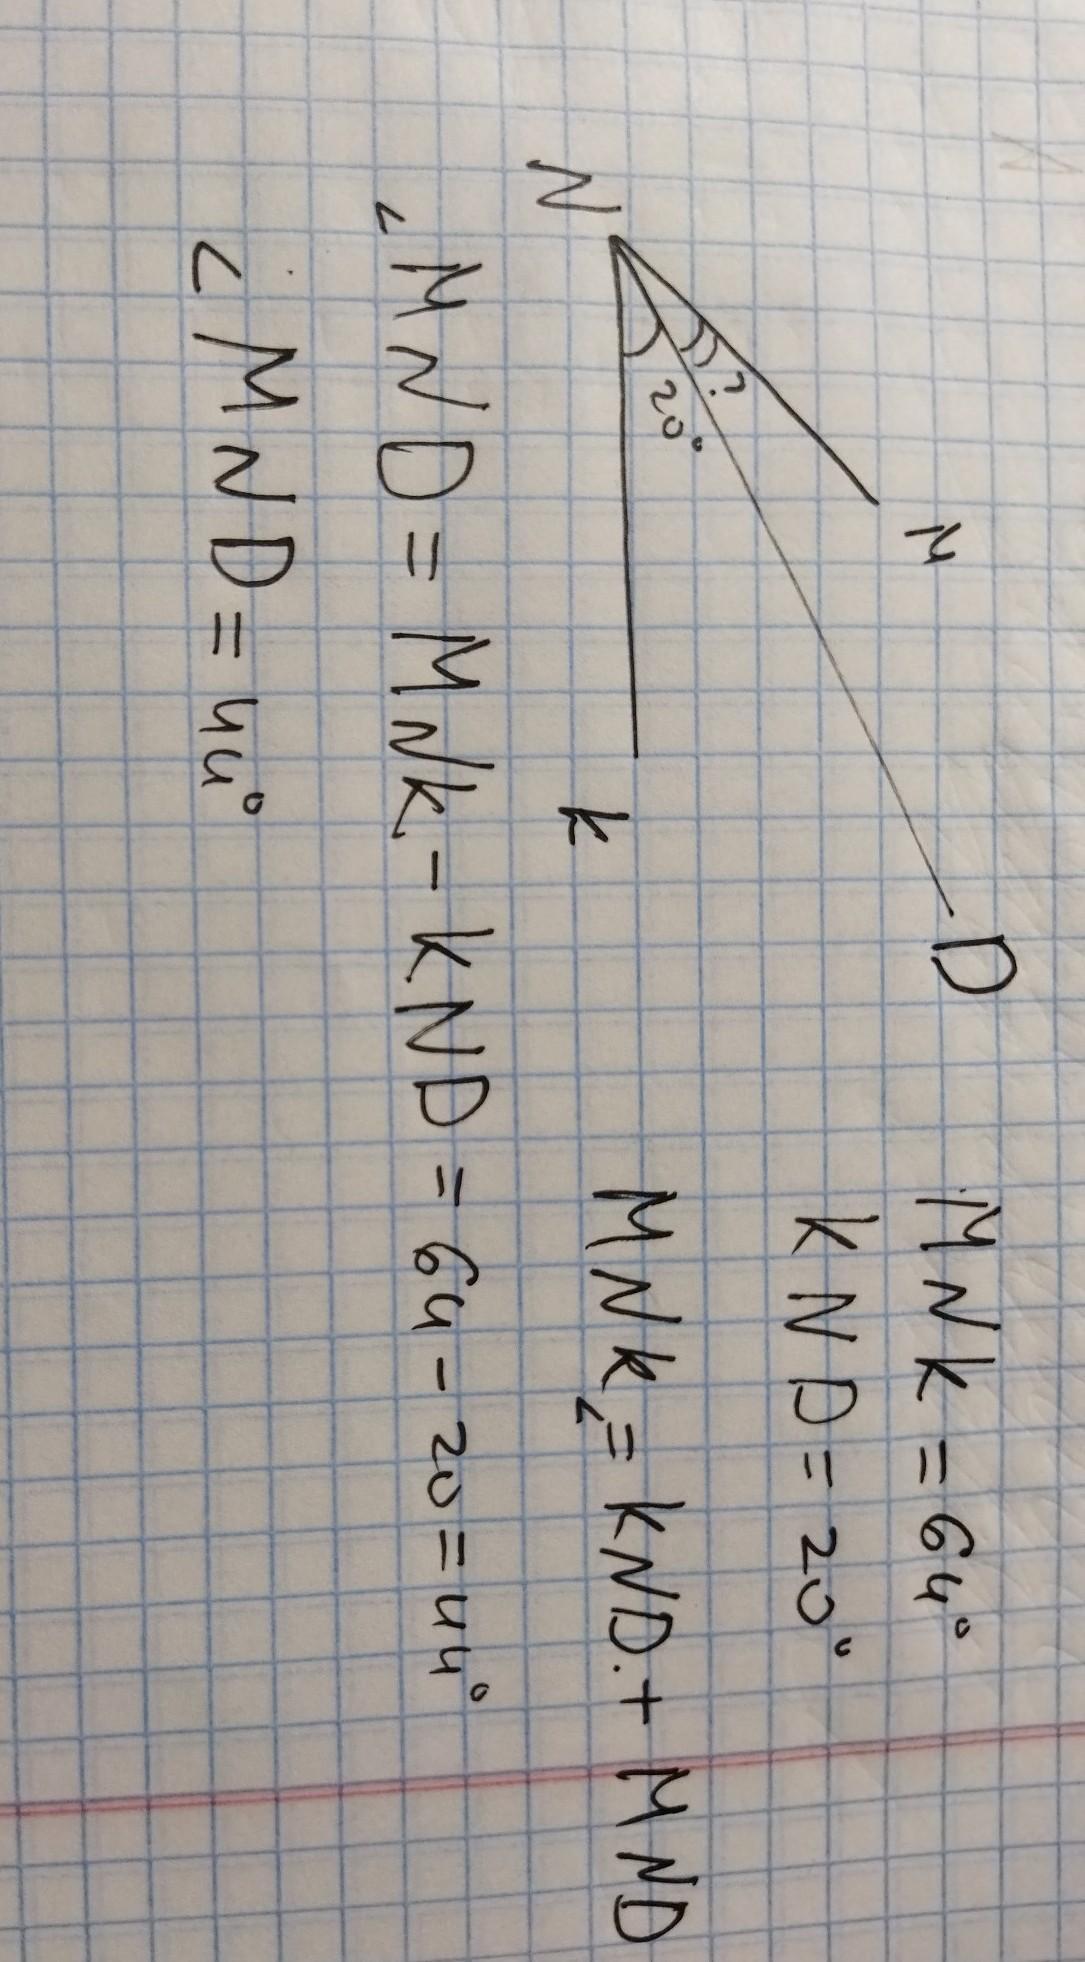 N
M
D
K
?
20°
MNK = 64°
KND = 20°
MNK∠ = KND. + MND
∠MND = MNK - KND = 64 - 20 = 44°
∠MND = 44°